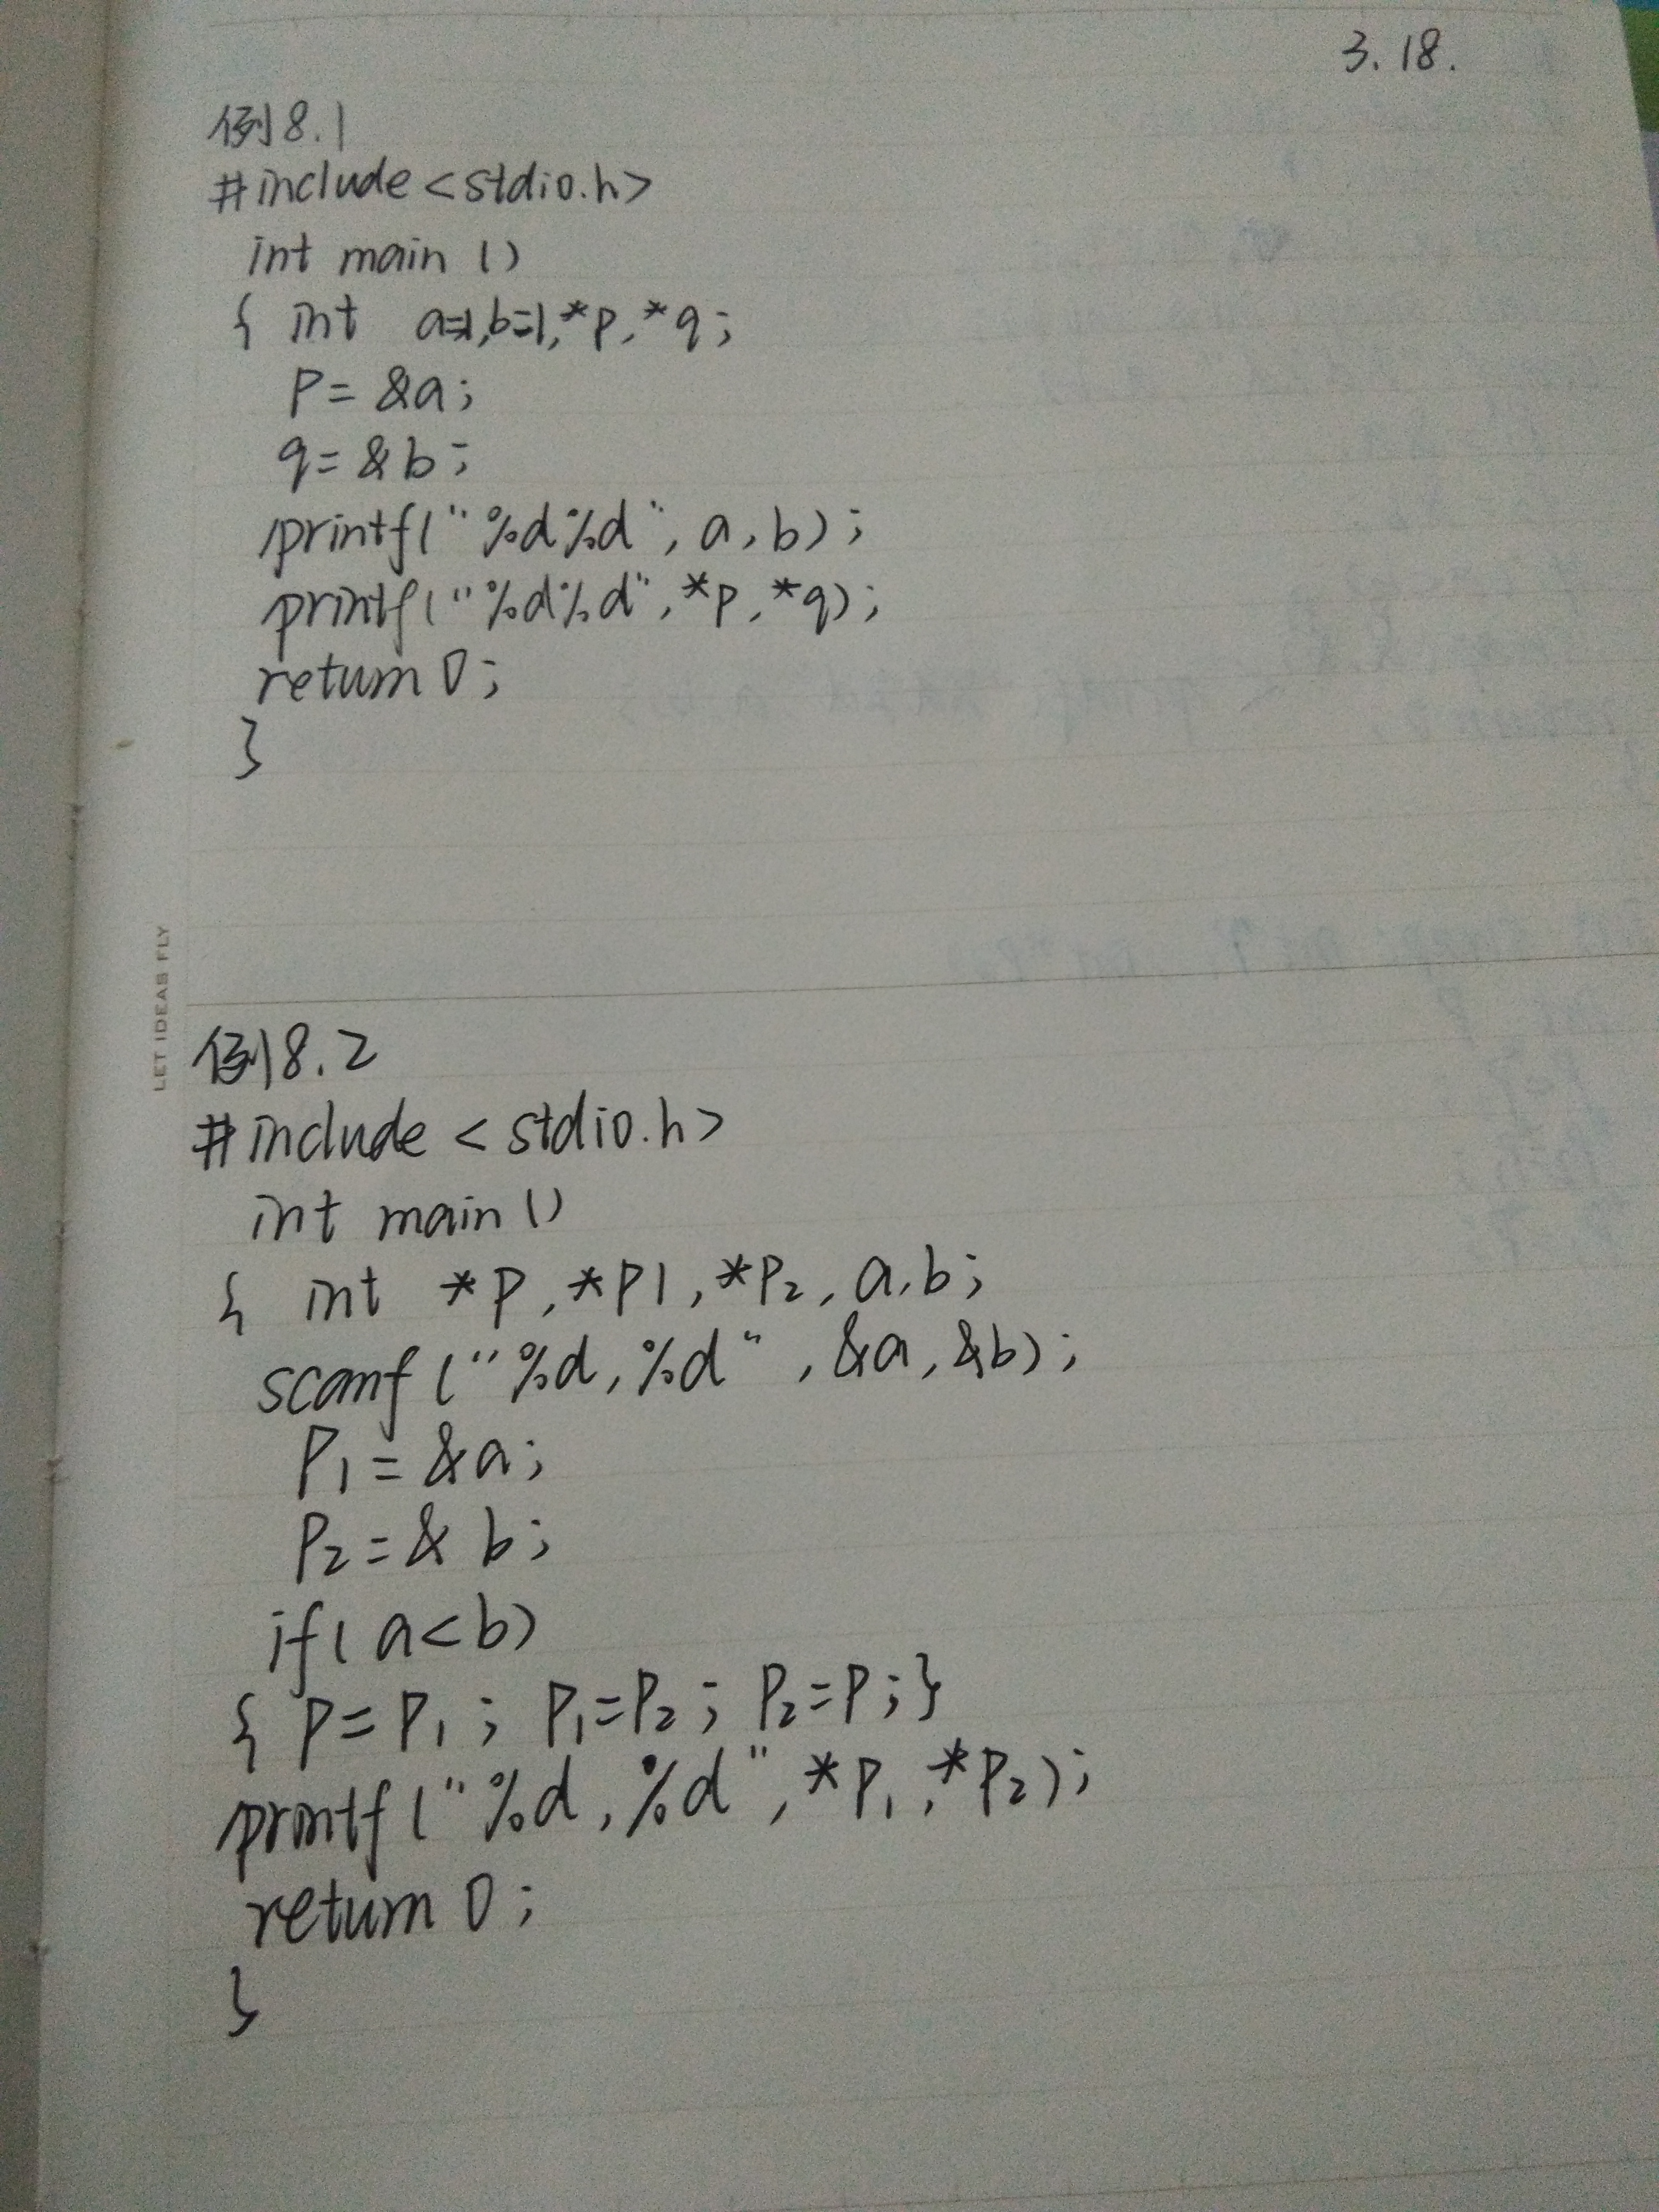 3.18.
例8.1
#include<stdio.h>
int main()
{ int a=1,b=1,*p,*q;
p=&a;
q=&b;
printf("%d%d",a,b);
printf("%d%d",*p,*q);
return 0;
}
LET IDEAS FLY
例8.2
#include<stdio.h>
int main()
{ int *p,*p1,*p2,a,b;
scanf("%d,%d",&a,&b);
p1=&a;
p2=&b;
if(a<b)
{ p=p1; p1=p2; p2=p;}
printf("%d,%d",*p1,*p2);
return 0;
}